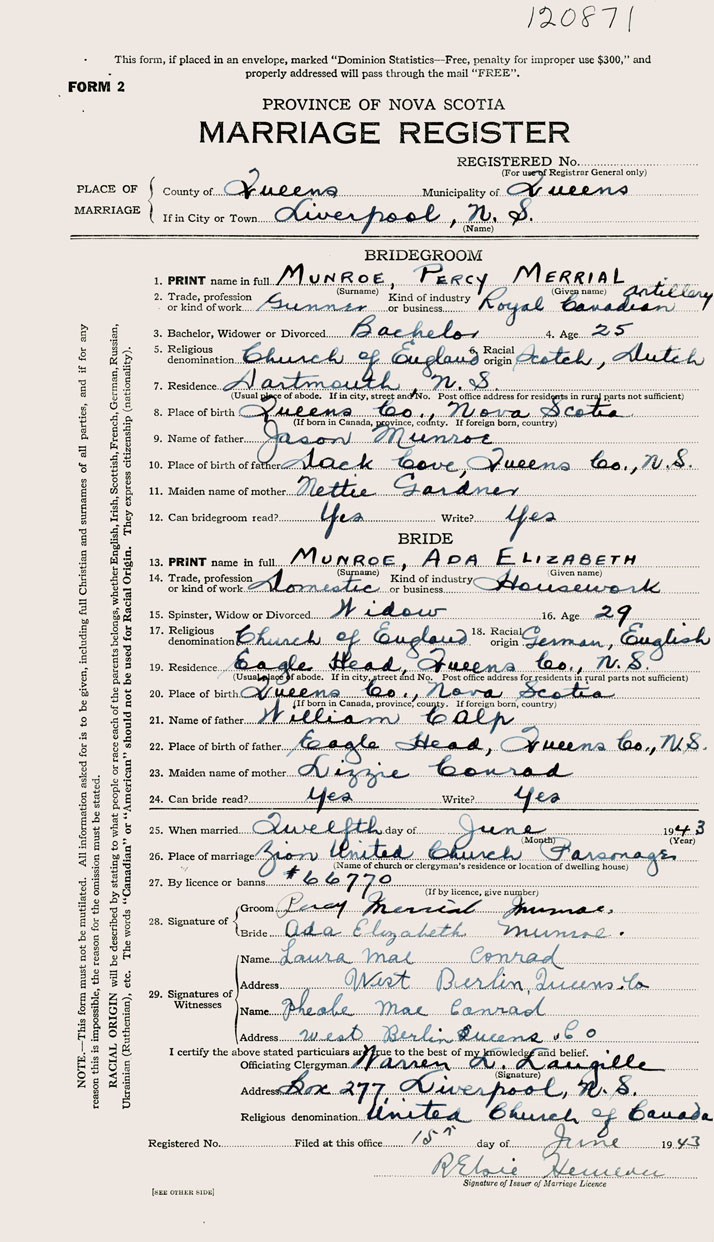 120871
This form, if placed in an envelope, marked "Dominion Statistics—Free, penalty for improper use $300," and
properly addressed will pass through the mail "FREE".
FORM 2
PROVINCE OF NOVA SCOTIA
MARRIAGE REGISTER
REGISTERED No.
(For use of Registrar General only)
PLACE OF MARRIAGE
County of Queens Municipality of Queens
If in City or Town Liverpool, N. S.
(Name)
BRIDEGROOM
1. PRINT name in full MUNROE, PERCY MERRIAL
(Surname) (Given name)
2. Trade, profession or kind of work Gunner Kind of industry or business Royal Canadian artillery
3. Bachelor, Widower or Divorced Bachelor 4. Age 25
5. Religious denomination Church of England 6. Racial origin Scotch, Dutch
7. Residence Dartmouth, N. S.
(Usual place of abode. If in city, street and No. Post office address for residents in rural parts not sufficient)
8. Place of birth Queens Co., Nova Scotia
(If born in Canada, province, county. If foreign born, country)
9. Name of father Jason Munroe
10. Place of birth of father Jack Cove, Queens Co., N.S.
11. Maiden name of mother Nettie Gardner
12. Can bridegroom read? Yes Write? Yes
BRIDE
13. PRINT name in full MUNROE, ADA ELIZABETH
(Surname) (Given name)
14. Trade, profession or kind of work Domestic Kind of industry or business Housework
15. Spinster, Widow or Divorced Widow 16. Age 29
17. Religious denomination Church of England 18. Racial origin German, English
19. Residence Eagle Head, Queens Co., N. S.
(Usual place of abode. If in city, street and No. Post office address for residents in rural parts not sufficient)
20. Place of birth Queens Co., Nova Scotia
(If born in Canada, province, county. If foreign born, country)
21. Name of father William Calp
22. Place of birth of father Eagle Head, Queens Co., N.S.
23. Maiden name of mother Lizzie Conrad
24. Can bride read? Yes Write? Yes
25. When married Twelfth day of June 1943
(Month) (Year)
26. Place of marriage Zion United Church Parsonage
(Name of church or clergyman's residence or location of dwelling house)
27. By licence or banns #66770
(If by licence, give number)
28. Signature of
Groom Percy Merrial Munroe.
Bride Ada Elizabeth Munroe.
29. Signatures of Witnesses
Name Laura Mae Conrad
Address West Berlin, Queens Co
Name Pheobe Mae Conrad
Address West Berlin Queens Co
I certify the above stated particulars are true to the best of my knowledge and belief.
Officiating Clergyman Warren L. Langille
(Signature)
Address Box 277, Liverpool, N. S.
Religious denomination United Church of Canada
Registered No. Filed at this office 15th day of June 1943
Signature of Issuer of Marriage Licence
[SEE OTHER SIDE]
NOTE.—This form must not be mutilated. All information asked for is to be given, including full Christian and surnames of all parties, and if for any
reason this is impossible, the reason for the omission must be stated.
RACIAL ORIGIN will be described by stating to what people or race each of the parents belongs, whether English, Irish, Scottish, French, German, Russian,
Ukrainian (Ruthenian), etc. The words "Canadian" or "American" should not be used for Racial Origin. They express citizenship (nationality).